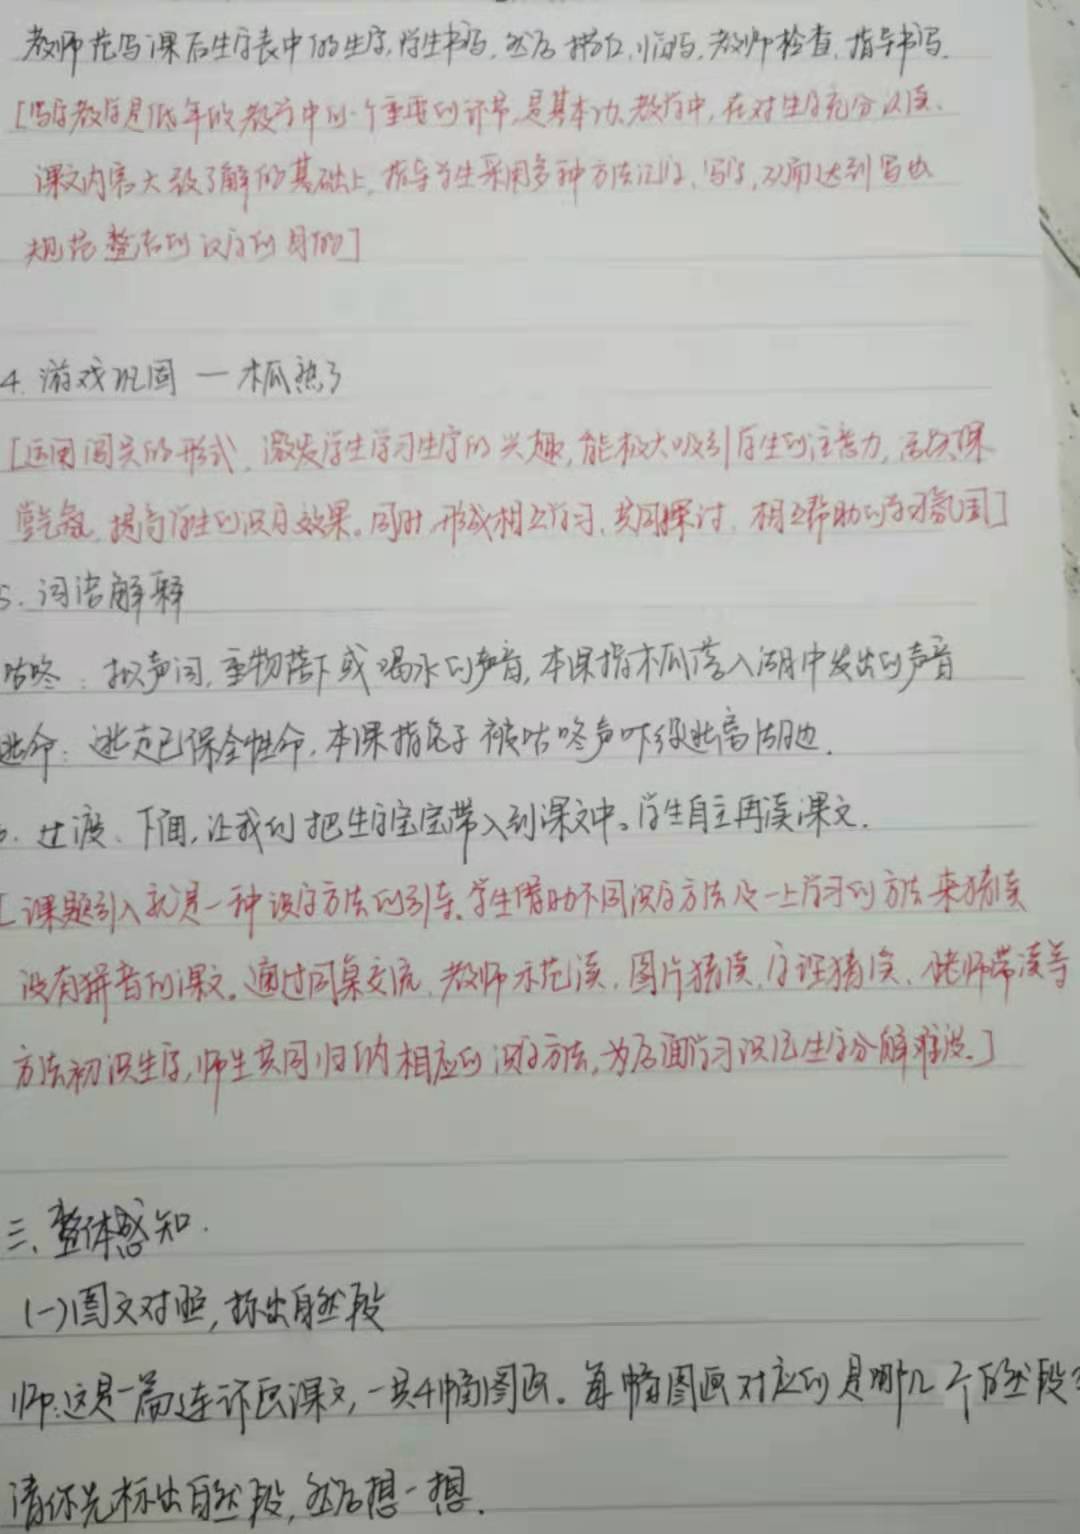 教师范写课后生字表中的生字,学生书写,然后描红,临写,教师检查,指导书写.
[写字教学是低年的教学中的一个重要的环节,是基本功,教学中,在对生字充分认读、
课文内容大致了解的基础上,指导学生采用多种方法记字、写字,从而达到写出
规范整洁的汉字的目的]
4.游戏巩固 — 木瓜熟了
[运用闯关的形式,激发学生学习生字的兴趣,能极大吸引学生的注意力,活跃课
堂气氛,提高学生的识字效果。同时,形成相互学习、共同探讨、相互帮助的学习氛围]
5.词语解释
咕咚:拟声词,重物落下或喝水的声音,本课指木瓜落入湖中发出的声音
逃命:逃走已保全性命,本课指兔子被咕咚声吓得逃离湖边.
6.过渡、下面,让我们把生字宝宝带入到课文中。学生自主再读课文.
[课题引入就是一种识字方法的引导,学生借助不同识字方法及一上学习的方法来猜读
没有拼音的课文。通过同桌交流、教师示范读、图片猜读、字理猜读、老师带读等
方法初识生字,师生共同归纳相应的识字方法,为后面学习识记生字分解难度.]
三、整体感知.
(一)图文对照,标出自然段
师:这是一篇连环画课文,一共4幅图画。每幅图画对应的是哪几个自然段?
请你先标出自然段,然后想一想.